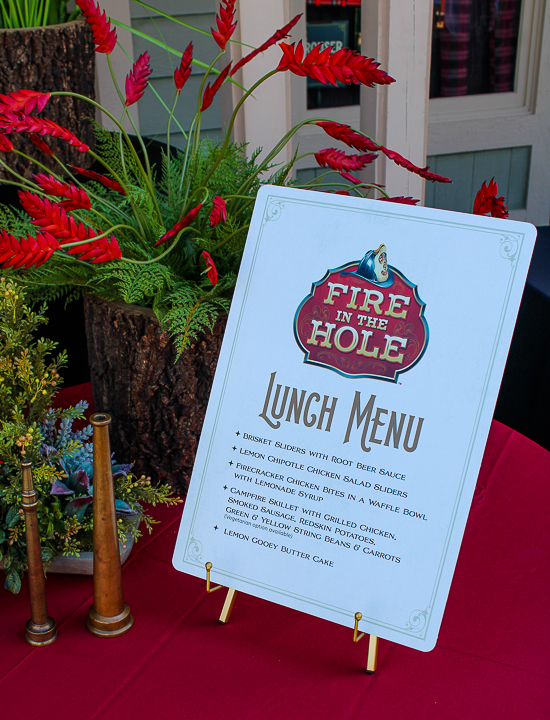 FIRE
IN THE
HOLE
™
LUNCH MENU
✦ BRISKET SLIDERS WITH ROOT BEER SAUCE
✦ LEMON CHIPOTLE CHICKEN SALAD SLIDERS
✦ FIRECRACKER CHICKEN BITES IN A WAFFLE BOWL
WITH LEMONADE SYRUP
✦ CAMPFIRE SKILLET WITH GRILLED CHICKEN,
SMOKED SAUSAGE, REDSKIN POTATOES,
GREEN & YELLOW STRING BEANS & CARROTS
(Vegetarian option available)
✦ LEMON GOOEY BUTTER CAKE